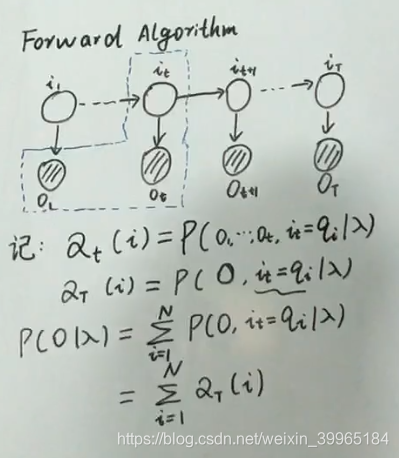 Forward Algorithm
i₁ iₜ iₜ₊₁ i_T
O₁ Oₜ Oₜ₊₁ O_T
记: αₜ(i) = P(O₁…Oₜ, iₜ=qᵢ|λ)
α_T(i) = P(O, iₜ=qᵢ|λ)
P(O|λ) = ∑ᵢ₌₁ᴺ P(O, iₜ=qᵢ|λ)
= ∑ᵢ₌₁ᴺ α_T(i)
https://blog.csdn.net/weixin_39965184